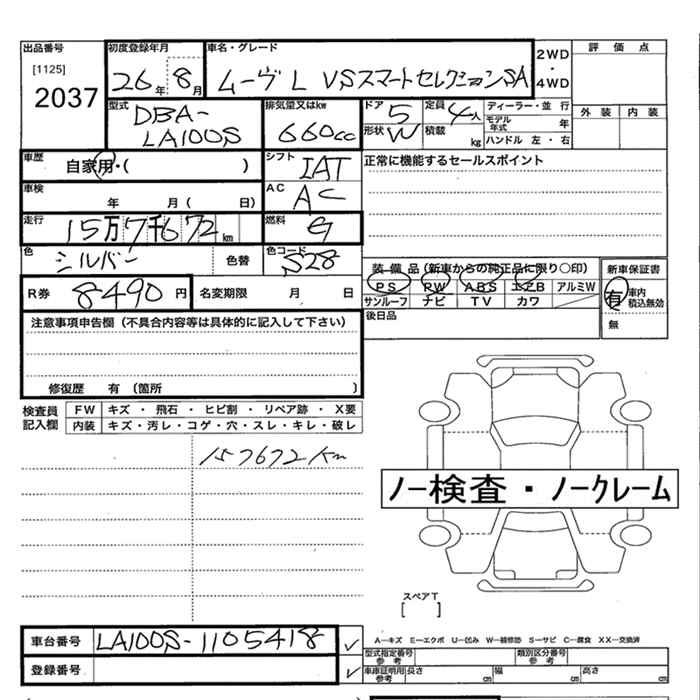 出品番号 初度登録年月 車名・グレード 2WD・4WD 評価点
[1125]
2037
26年 8月 ムーヴL VSスマートセレクションSA
型式 排気量又はkw ドア 5 定員 4人 ディーラー・並行 外装 内装
DBA-
LA100S 660cc 形状 W 積載 kg モデル年式 年
ハンドル 左・右
車歴 自家用・( ) シフト IAT 正常に機能するセールスポイント
車検 年 月 ( 日) AC AC
走行 15万7千672km 燃料 G
色 シルバー 色替 色コード S28
装備品(新車からの純正品に限り○印) 新車保証書
R券 8490円 名変期限 月 日 PS PW ABS エアB アルミW 有 車内積込無効
サンルーフ ナビ TV カワ
注意事項申告欄(不具合内容等は具体的に記入して下さい) 後日品 無
修復歴 有 (箇所 )
検査員記入欄 FW キズ・飛石・ヒビ割・リペア跡・X要
内装 キズ・汚レ・コゲ・穴・スレ・キレ・破レ
157672km
ノー検査・ノークレーム
スペアT
[ ]
車台番号 LA100S-1105418 ✓
A―キズ E―エクボ U―凹み W―補修跡 S―サビ C―腐食 XX―交換済
型式指定番号 参考 類別区分番号 参考
登録番号 ✓ 車庫証明用 参考 長さ cm 幅 cm 高さ cm